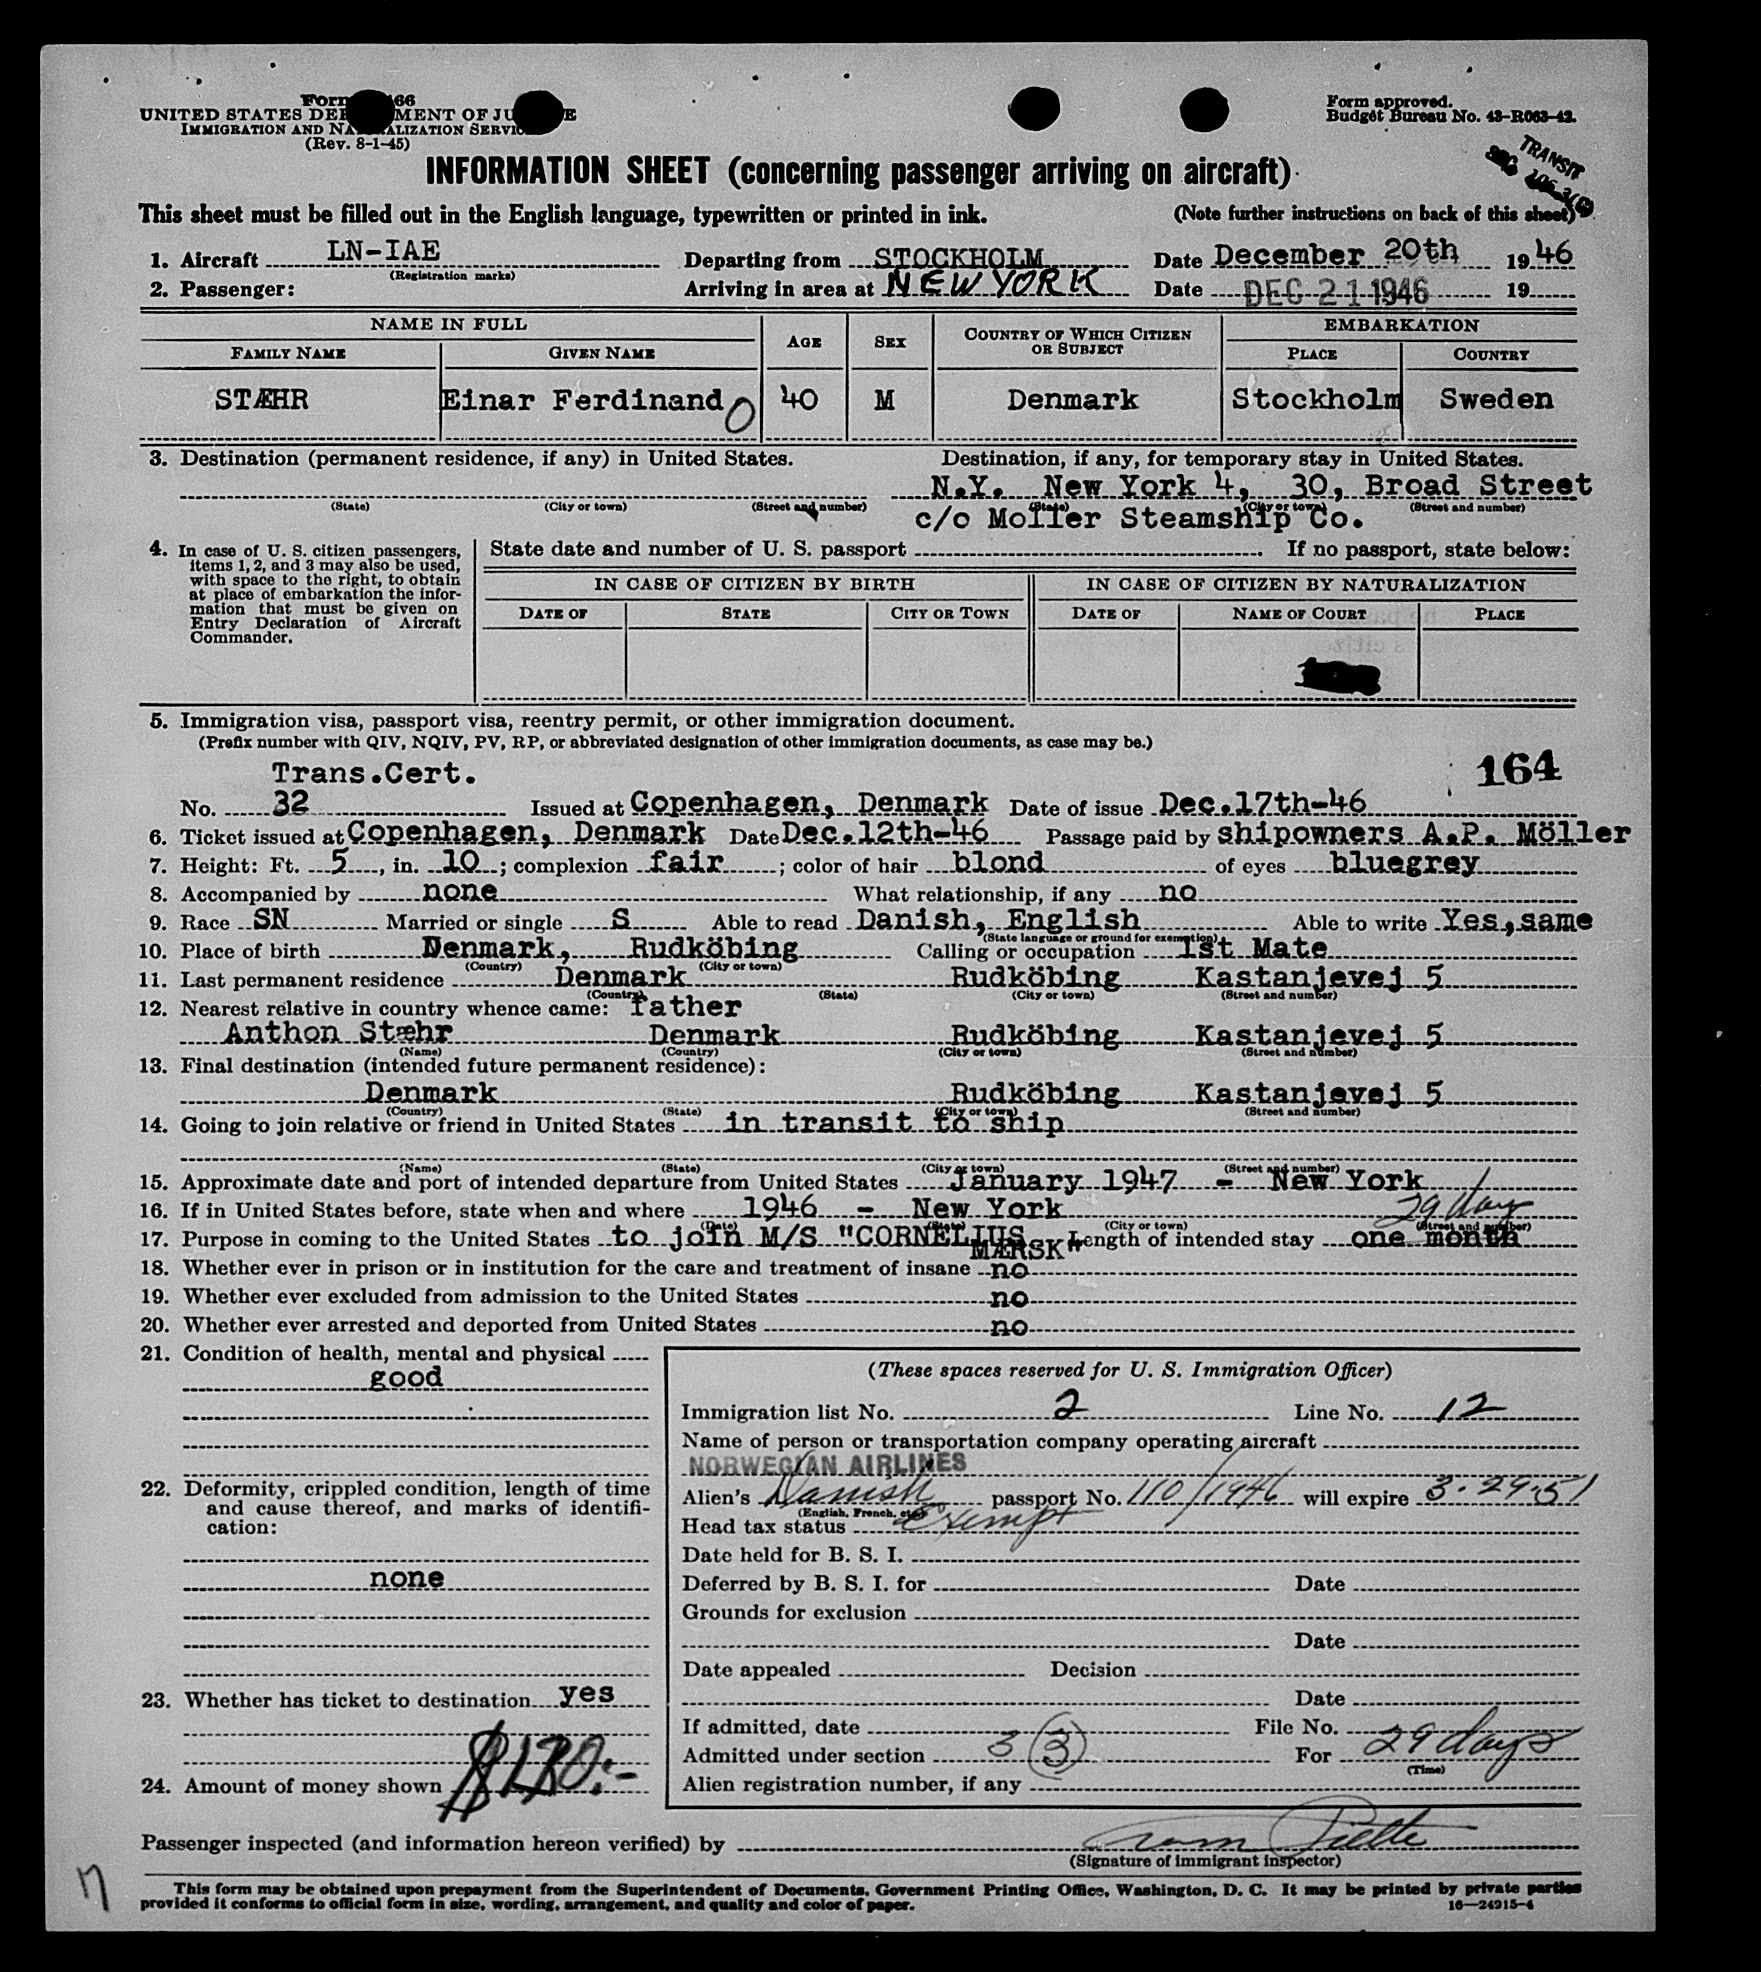 Form 66
UNITED STATES DEPARTMENT OF JUSTICE
IMMIGRATION AND NATURALIZATION SERVICE
(Rev. 8-1-45)
Form approved.
Budget Bureau No. 43-R063-42.
TRANSIT
INFORMATION SHEET (concerning passenger arriving on aircraft)
This sheet must be filled out in the English language, typewritten or printed in ink. (Note further instructions on back of this sheet)
1. Aircraft LN-IAE Departing from STOCKHOLM Date December 20th 1946
(Registration marks)
2. Passenger: Arriving in area at NEW YORK Date DEC 21 1946 19
NAME IN FULL AGE SEX COUNTRY OF WHICH CITIZEN OR SUBJECT EMBARKATION
FAMILY NAME GIVEN NAME PLACE COUNTRY
STÆHR Einar Ferdinand 0 40 M Denmark Stockholm Sweden
3. Destination (permanent residence, if any) in United States. Destination, if any, for temporary stay in United States.
N.Y. New York 4, 30, Broad Street
(State) (City or town) (Street and number) (State) (City or town) (Street and number)
c/o Moller Steamship Co.
4. In case of U. S. citizen passengers, items 1, 2, and 3 may also be used, with space to the right, to obtain at place of embarkation the information that must be given on Entry Declaration of Aircraft Commander.
State date and number of U. S. passport If no passport, state below:
IN CASE OF CITIZEN BY BIRTH IN CASE OF CITIZEN BY NATURALIZATION
DATE OF STATE CITY OR TOWN DATE OF NAME OF COURT PLACE
5. Immigration visa, passport visa, reentry permit, or other immigration document.
(Prefix number with QIV, NQIV, PV, RP, or abbreviated designation of other immigration documents, as case may be.)
164
Trans.Cert.
No. 32 Issued at Copenhagen, Denmark Date of issue Dec.17th-46
6. Ticket issued at Copenhagen, Denmark Date Dec.12th-46 Passage paid by shipowners A.P. Möller
7. Height: Ft. 5, in. 10; complexion fair; color of hair blond of eyes bluegrey
8. Accompanied by none What relationship, if any no
9. Race SN Married or single S Able to read Danish, English Able to write Yes,same
(State language or ground for exemption)
10. Place of birth Denmark, Rudköbing Calling or occupation 1st Mate
(Country) (City or town)
11. Last permanent residence Denmark Rudköbing Kastanjevej 5
(Country) (State) (City or town) (Street and number)
12. Nearest relative in country whence came: father
Anthon Stæhr Denmark Rudköbing Kastanjevej 5
(Name) (Country) (City or town) (Street and number)
13. Final destination (intended future permanent residence):
Denmark Rudköbing Kastanjevej 5
(Country) (State) (City or town) (Street and number)
14. Going to join relative or friend in United States in transit to ship
(Name) (State) (City or town) (Street and number)
15. Approximate date and port of intended departure from United States January 1947 - New York
16. If in United States before, state when and where 1946 - New York 29 day
(Date) (State) (City or town) (Street and number)
17. Purpose in coming to the United States to join M/S "CORNELIUS MÆRSK" Length of intended stay one month
18. Whether ever in prison or in institution for the care and treatment of insane no
19. Whether ever excluded from admission to the United States no
20. Whether ever arrested and deported from United States no
21. Condition of health, mental and physical
good
22. Deformity, crippled condition, length of time and cause thereof, and marks of identification:
none
23. Whether has ticket to destination yes
24. Amount of money shown
(These spaces reserved for U. S. Immigration Officer)
Immigration list No. 2 Line No. 12
Name of person or transportation company operating aircraft
NORWEGIAN AIRLINES
Alien's Danish passport No. 110/1946 will expire 3-29-51
(English, French, etc.)
Head tax status Exempt
Date held for B. S. I.
Deferred by B. S. I. for Date
Grounds for exclusion
Date
Date appealed Decision
Date
If admitted, date File No.
Admitted under section 3 (3) For 29 days
(Time)
Alien registration number, if any
Passenger inspected (and information hereon verified) by
(Signature of immigrant inspector)
This form may be obtained upon prepayment from the Superintendent of Documents, Government Printing Office, Washington, D. C. It may be printed by private parties
provided it conforms to official form in size, wording, arrangement, and quality and color of paper. 16—24915-4